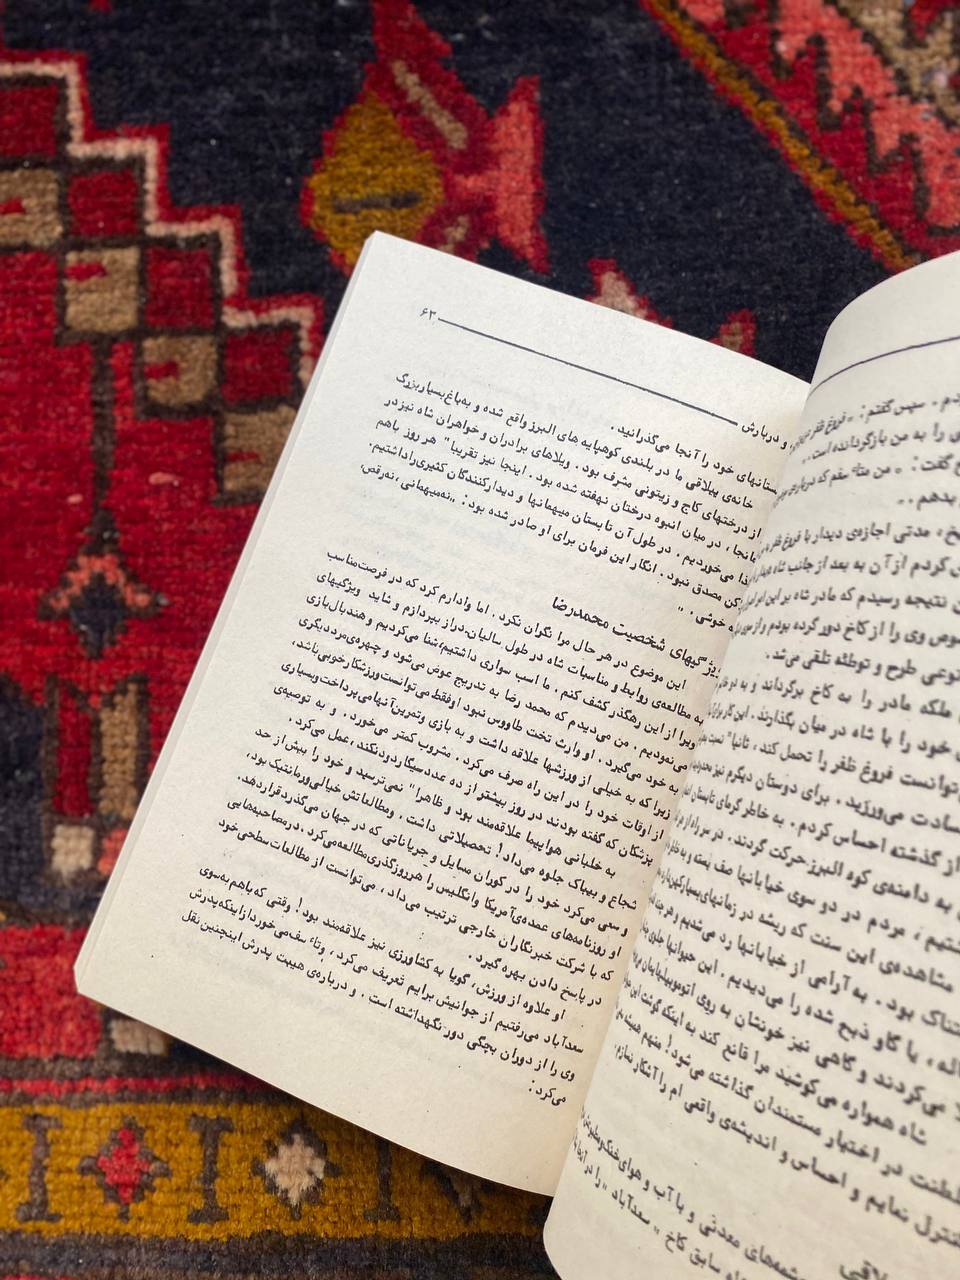 دم . سپس گفتم : " فروغ ظفر
ی را به من بازگردانده است . .
گفت : " من متاسفم که درباره‌ی
بدهم . .
مدتی اجازه‌ی دیدار با فروغ ظفر
ی کردم از آن به بعد از جانب شاه
نتیجه رسیدم که مادر شاه بر این امر
وص وی را از کاخ دور کرده بودم و از سوی
نوعی طرح و توطئه تلقی می‌شد .
ملکه مادر را به کاخ برگرداند و به
خود را با شاه در میان بگذارند . این کار برای
توانست فروغ ظفر را تحمل کند ، ثانیا"
سادت می‌ورزید . برای دوستان دیگرم نیز
از گذشته احساس کردم . به خاطر گرمای تابستان
به دامنه‌ی کوه البرز حرکت کردند . در سر راه
شتیم ، مردم در دو سوی خیابانها صف بسته و به
مشاهده‌ی این سنت که ریشه در زمانهای بسیار
تناک بود . به آرامی از خیابانها رد می‌شدیم و هر چند
اله ، یا گاو ذبح شده را می‌دیدیم . این حیوانها جلوی
می‌کردند و گاهی نیز خونشان به روی اتومبیلهایمان
شاه همواره می‌کوشید مرا قانع کند به اینکه گوشت این
در اختیار مستمندان گذاشته می‌شود ! منهم همیشه
کنترل نمایم و احساس و اندیشه‌ی واقعی ام را آشکار نسازم .
لاقی
شمه‌های معدنی و با آب و هوای خنک و
سابق کاخ " سعدآباد " را در
و دربارش ۶۳
ستانهای خود را آنجا می‌گذرانید .
خانه‌ی ییلاقی ما در بلندی کوهپایه های البرز واقع شده و به‌باغ بسیار بزرگ
از درختهای کاج و زیتونی مشرف بود . ویلاهای برادران و خواهران شاه نیز در
انجا ، در میان انبوه درختان نهفته شده بود . اینجا نیز تقریبا" هر روز باهم
ذا می‌خوردیم . در طول آن تابستان میهمانها و دیدارکنندگان کثیری را داشتیم .
کن مصدق نبود . انگار این فرمان برای او صادر شده بود : " نه‌میهمانی ، نه‌رقص ،
ه خوشی . "
یژگیهای شخصیت محمدرضا
این موضوع در هر حال مرا نگران نکرد . اما وادارم کرد که در فرصت‌مناسب
به مطالعه‌ی روابط و مناسبات شاه در طول سالیان دراز بپردازم و شاید ویژگیهای
ویرا از این رهگذر کشف کنم . ما اسب سواری داشتیم ، شنا می‌کردیم و هندبال بازی
می‌نمودیم . من می‌دیدم که محمد رضا به تدریج عوض می‌شود و چهره‌ی مرد دیگری
به خود می‌گیرد . او وارث تخت طاووس نبود او فقط می‌توانست ورزشکار خوبی باشد ،
زیرا که به خیلی از ورزشها علاقه داشت و به بازی وتمرین‌آنهامی‌پرداخت‌وبسیاری
از اوقات خود را در این راه صرف می‌کرد . مشروب کمتر می‌خورد . و به توصیه‌ی
پزشکان که گفته بودند در روز بیشتر از ده عدد سیگار دود نکند ، عمل می‌کرد .
به خلبانی هواپیما علاقه‌مند بود و ظاهرا" نمی‌ترسید و خود را بیش از حد
شجاع و بیباک جلوه می‌داد ! تحصیلاتی داشت . ومطالباتش خیالی ورمانتیک بود ،
و سعی می‌کرد خود را در کوران مسایل و جریاناتی که در جهان می‌گذرد قرار دهد .
او روزنامه‌های عمده‌ی آمریکا وانگلیس را هرروز گذری مطالعه می‌کرد . در مصاحبه‌هایی
که با شرکت خبرنگاران خارجی ترتیب می‌داد ، می‌توانست از مطالعات سطحی خود
در پاسخ دادن بهره گیرد .
او علاوه از ورزش ، گویا به کشاورزی نیز علاقه‌مند بود ! وقتی که باهم به‌سوی
سعدآباد می‌رفتیم از جوانیش برایم تعریف می‌کرد ، وتاسف می‌خورد ازاینکه پدرش
وی را از دوران بچگی دور نگهداشته است . و درباره‌ی هیبت پدرش اینچنین نقل
می‌کرد :